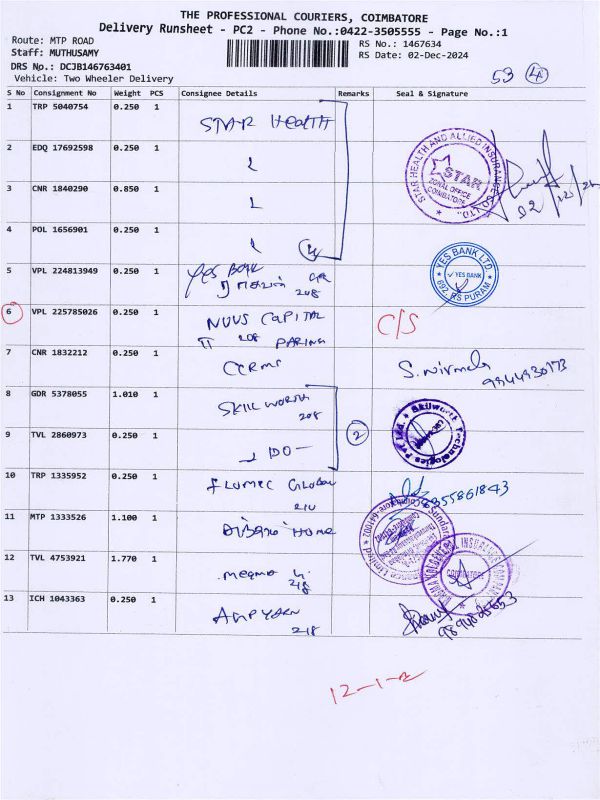 THE PROFESSIONAL COURIERS, COIMBATORE
Delivery Runsheet - PC2 - Phone No.:0422-3505555 - Page No.:1
Route: MTP ROAD
RS No.: 1467634
Staff: MUTHUSAMY
RS Date: 02-Dec-2024
DRS No.: DCJB146763401
Vehicle: Two Wheeler Delivery
53 4
S No Consignment No Weight PCS Consignee Details Remarks Seal & Signature
1 TRP 5040754 0.250 1 STAR HEALTH
2 EDQ 17692598 0.250 1
STAR HEALTH AND ALLIED INSURANCE CO. LTD.
STAR
ZONAL OFFICE
COIMBATORE
3 CNR 1840290 0.850 1
02/12/24
4 POL 1656901 0.250 1 4
5 VPL 224813949 0.250 1 YES BANK
208
YES BANK LTD.
YES BANK
692, RS PURAM
6 VPL 225785026 0.250 1 NOVS CAPITAL C/S
208
7 CNR 1832212 0.250 1 S. Nirmala
8 GDR 5378055 1.010 1 SKILL WORTH
208
Skilworth Technologies Pvt Ltd.
9 TVL 2860973 0.250 1 DO 2
10 TRP 1335952 0.250 1 FLOMEC GLOBAL
210
11 MTP 1333526 1.100 1 HOME
12 TVL 4753921 1.770 1 Magma
218
COIMBATORE
13 ICH 1043363 0.250 1
218
12-1-2